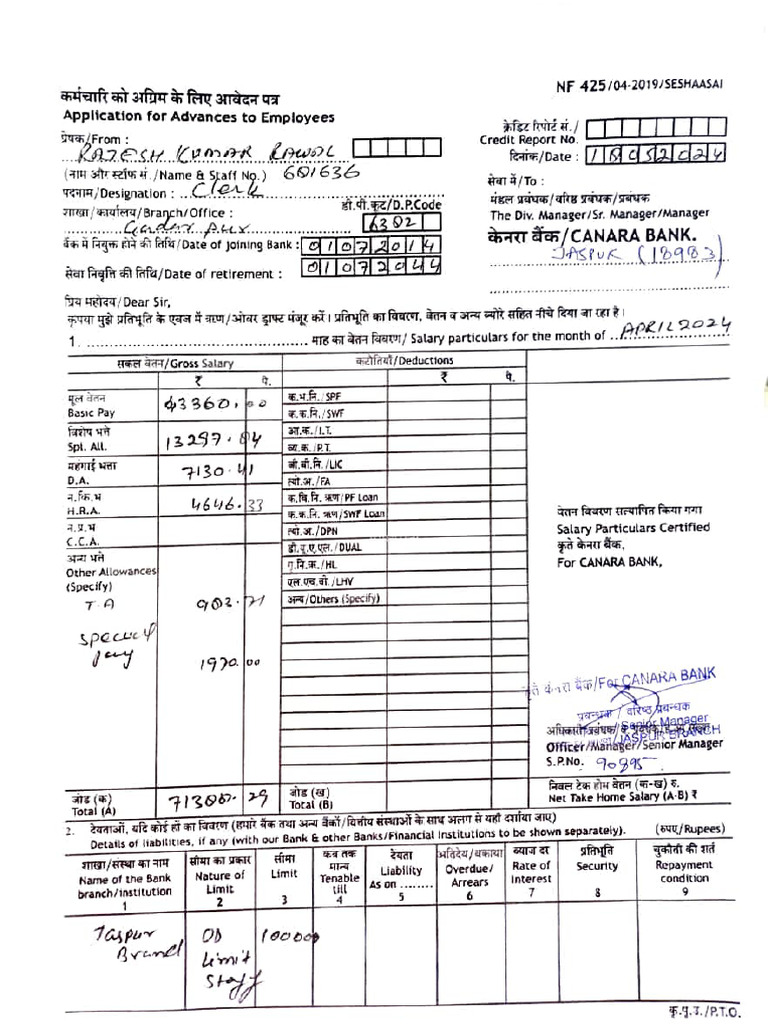 NF 425/04-2019/SESHAASAI
कर्मचारि को अग्रिम के लिए आवेदन पत्र
Application for Advances to Employees
क्रेडिट रिपोर्ट सं./
Credit Report No.
प्रेषक/From :
RAJESH KUMAR RAWAL
दिनांक/Date : 18052024
(नाम और स्टॉफ सं./Name & Staff No.) 601636
सेवा में/To :
पदनाम/Designation : Clerk
मंडल प्रबंधक/वरिष्ठ प्रबंधक/प्रबंधक
शाखा/कार्यालय/Branch/Office : डी.पी.कूट/D.P.Code
The Div. Manager/Sr. Manager/Manager
6302
केनरा बैंक/CANARA BANK.
बैंक में नियुक्त होने की तिथि/Date of joining Bank : 01072014
JASPUR (18983)
सेवा निवृत्ति की तिथि/Date of retirement : 01072044
प्रिय महोदय/Dear Sir,
कृपया मुझे प्रतिभूति के एवज में ऋण/ओवर ड्राफ्ट मंजूर करें। प्रतिभूति का विवरण, वेतन व अन्य ब्योरे सहित नीचे दिया जा रहा है।
1. माह का वेतन विवरण/Salary particulars for the month of APRIL 2024
सकल वेतन/Gross Salary कटौतियाँ/Deductions
₹ पै. ₹ पै.
मूल वेतन
Basic Pay 43360.00
क.भ.नि./SPF
क.क.नि./SWF
विशेष भत्ते
Spl. All. 13297.84
आ.क./I.T.
व्य.क./P.T.
महंगाई भत्ता
D.A. 7130.41
जी.बी.नि./LIC
त्यो.अ./FA
न.कि.भ
H.R.A. 4646.33
क.भि.नि. ऋण/PF Loan
क.क.नि. ऋण/SWF Loan
न.प्र.भ
C.C.A.
त्यो.अ./DPN
डी.यू.ए.एल./DUAL
अन्य भत्ते
Other Allowances
(Specify)
गृ.नि.क./HL
एल.एच.वी./LHV
अन्य/Others (Specify)
T.A 902.71
special
pay 1970.00
वेतन विवरण सत्यापित किया गया
Salary Particulars Certified
कृते केनरा बैंक,
For CANARA BANK,
कृते केनरा बैंक/For CANARA BANK
प्रबन्धक / वरिष्ठ प्रबन्धक
Senior Manager
JASPUR BRANCH
Officer/Manager/Senior Manager
S.P.No. 90895
जोड (क)
Total (A) 71300.29
जोड (ख)
Total (B)
निवल टेक होम वेतन (क-ख) रु.
Net Take Home Salary (A-B) ₹
2. देयताओं, यदि कोई हों का विवरण (हमारे बैंक तथा अन्य बैंकों/वित्तीय संस्थाओं के साथ अलग से यहाँ दर्शाया जाए)
Details of liabilities, if any (with our Bank & other Banks/Financial Institutions to be shown separately). (रुपए/Rupees)
शाखा/संस्था का नाम
Name of the Bank
branch/institution
1
सीमा का प्रकार
Nature of
Limit
2
सीमा
Limit
3
कब तक
मान्य
Tenable
till
4
देयता
Liability
As on ........
5
अतिदेय/बकाया
Overdue/
Arrears
6
ब्याज दर
Rate of
interest
7
प्रतिभूति
Security
8
चुकौती की शर्त
Repayment
condition
9
Jaspur
Branch
OD
Limit
Staff
100000
कृ.पु.उ./P.T.O.